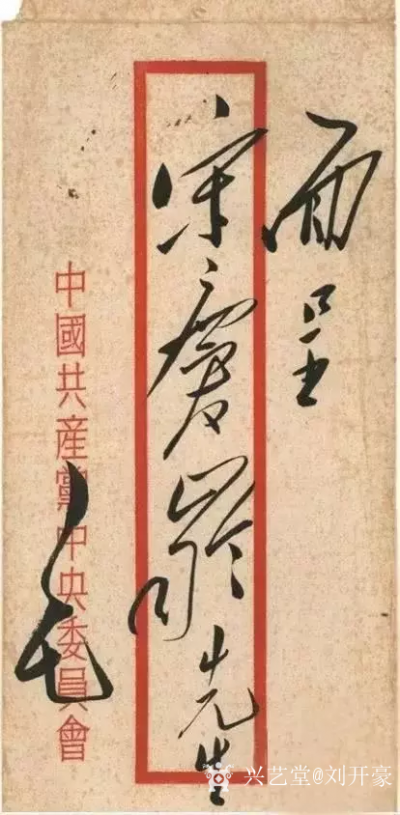 面呈
宋慶齡先生
毛
中國共産黨中央委員會
兴艺堂@刘开豪